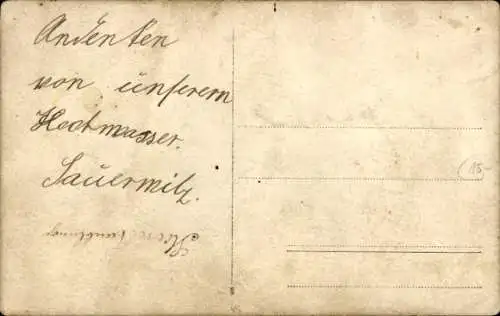 Andenken
von unserem
Hochwasser.
Sauermilz.
(85